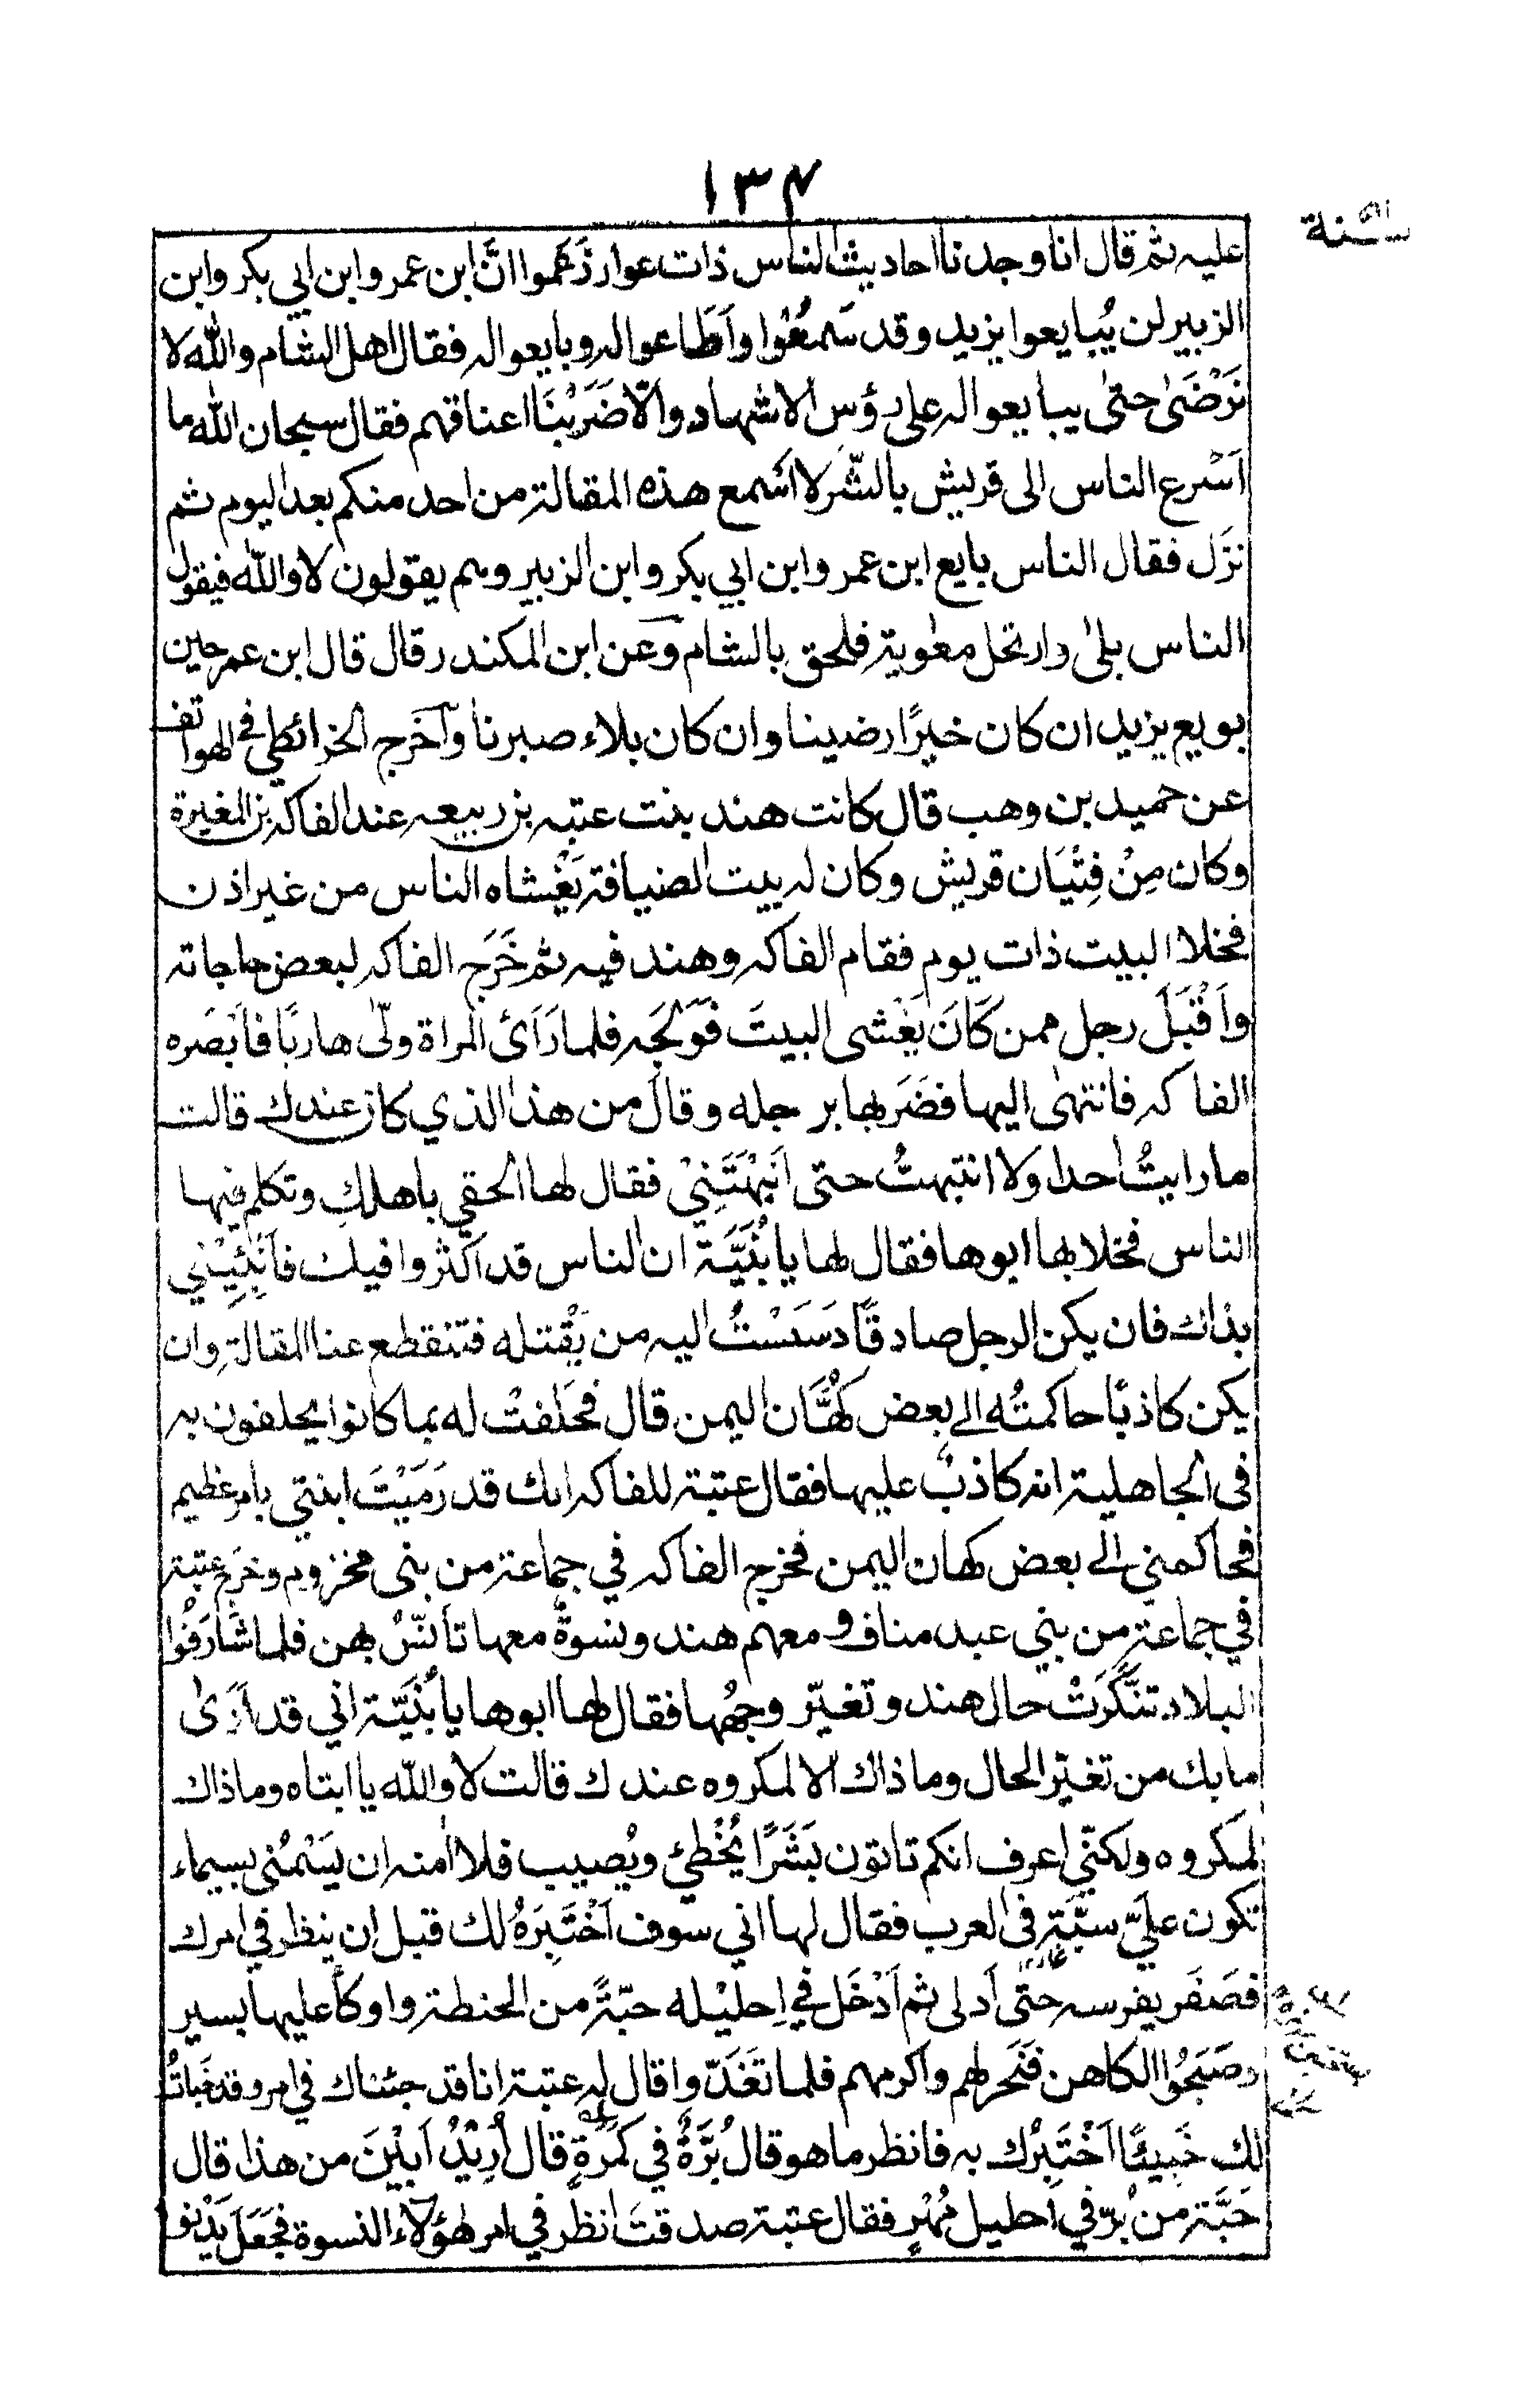 ١٣٧
سنة ٥١
عليه ثم قال انا وجدنا احاديث الناس ذات عوار زَعَموا انَّ ابن عمر وابن ابي بكر وابن
الزبير لن يُبايعوا يزيد وقد سَمِعُوا واَطَاعوا له وبايعوا له فقال اهل الشام والله لا
نَرْضَىٰ حتىٰ يبايعوا له على رؤس الاشهاد والّا ضَرَبْنَا اعناقهم فقال سبحان الله ما
اَسْرع الناس الى قريش بالشّر لا اسْمع هذه المقالة من احد منكم بعد اليوم ثم
نزَل فقال الناس بايع ابن عمر وابن ابي بكر وابن الزبير وهم يقولون لا والله فيقول
الناس بلىٰ وارتحل معٰوية فلحق بالشام وعن ابن المكندر قال قال ابن عمر حين
بويع يزيد ان كان خيرًا رضينا وان كان بلاء صبرنا وآخَرج الخرائطي في الهواتف
عن حميد بن وهب قال كانت هند بنت عتبه بن ربيعه عند الفاكه بن المغيرة
وكان مِنْ فِتْيَان قريش وكان له بيت الضيافة يَغْشاه الناس من غير اذن
فخلا البيت ذات يوم فقام الفاكه وهند فيه ثم خَرَج الفاكه لبعض حاجاته
واَقْبَلَ رجل ممن كَانَ يَغْشى البيتَ فَوَلَجَه فلما رَاَى المراة ولّى هاربًا فاَبْصَره
الفاكه فانتهىٰ اليها فضَرَبها برجله وقال من هذا الذي كان عندك قالت
ما رايتُ احدا ولا انتبهتُ حتى اَنْبَهْتَنِيْ فقال لها الحقي باهلكِ وتكلم فيها
الناس فخلا بها ابوها فقال لها يا بُنَيَّة ان الناس قد اكثروا فيك فاَنْبِئِيْني
بذاك فان يكن الرجل صادقًا دَسَسْتُ اليه من يَقْتله فتنقطع عنا المقالة وان
يكن كاذبًا حاكمتُه الى بعض كُهَّان اليمن قال فحَلفتْ له بما كانوا يحلفون به
فى الجاهلية انه كاذبٌ عليها فقال عتبة للفاكه انك قد رَمَيْتَ ابنتي بامر عظيم
فحاكمني الى بعض كهان اليمن فخرج الفاكه في جماعة من بنى مخزوم وخرج عتبة
في جماعة من بني عبد مناف ومعهم هند ونسوةٌ معها تاَنسّ بهن فلما شَارَفُوا
البلاد تنَّكَرَتْ حال هند وتغيّر وجهُها فقال لها ابوها يا بُنَيَّة اني قد اَرَىٰ
ما بك من تغيّر الحال وما ذاك الا لمكروه عندك قالت لا والله يا ابتاه وما ذاك
لمكروه ولكنّي اعرف انكم تاتون بَشَرًا يُخْطئ ويُصيب فلا اٰمنه ان يَسْمُنى بسيماء
تكون علَيّ سبَّةٍ فى العرب فقال لها اني سوف اَخْتَبِرَهُ لك قبل ان ينظر في امرك
فصَفَر بفرسه حتّى اَدلى ثم اَدْخَل في اِحليْله حبّةً من الحنطة واوكأ عليها بسير
وصَبَّحُوا الكاهن فنَحر لهم واكرمهم فلما تَغَدّوا قال له عتبة انا قد جئناك في امر وقد خَبأتُ
لك خَبِيئًا اَخْتَبِرُك به فانظر ما هو قال بُرَّةٌ في كَمَرةٍ قال اُرِيْدُ اَبْيَنَ من هذا قال
حَبَّة من بُرّ في احليل مُهْرٍ فقال عتبة صدقتَ انظر في امر هٰؤلاء النسوة فجَعَلَ يَدْنو